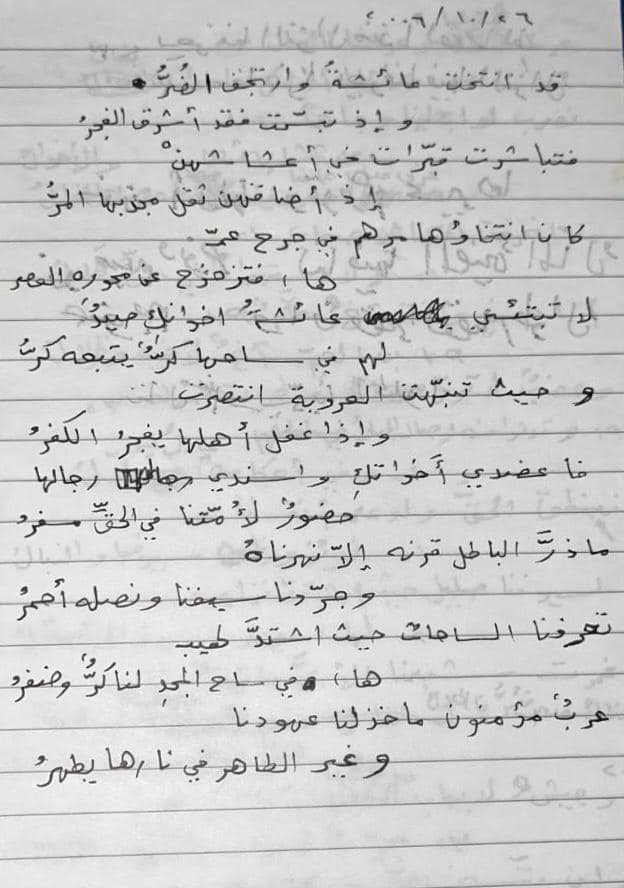 ٢٠٠٦/١٠/٢٦
قد انتخت عائشةُ وارتجف الضُرُّ
وإذ تبسّمت فقد أشرق الفجرُ
فتباشرت قبّرات في أعشاشهنْ
إذ أضاقهن ثقل مجذبها المرُّ
كان انتخاؤها مرهم في جرح عمّـ
ها، فتزحزح عن محوره العصر
لا تبتئسي عائشةُ اخوانكِ صيدُ
لهم في ساحها كرٌّ يتبعه كرُّ
وحيث تنبّهت العروبة انتصرت
وإذا غفل أهلها يفجرُ الكفرُ
فاعضدي أخواتكِ واسندي رجالها
حضورٌ لأمّتنا في الحقِّ سفرُ
ماذرَّ الباطل قرنه إلاّ نهرناهُ
وجرّدنا سيفنا ونصله أحمرُ
تعرفنا الساحات حيث اشتدَّ لهيبـ
ها، في ساح المجدِ لنا كرٌّ وضفرُ
عربٌ مؤمنون ماخذلنا عهودنا
وغير الطاهر في نارها يطهرُ